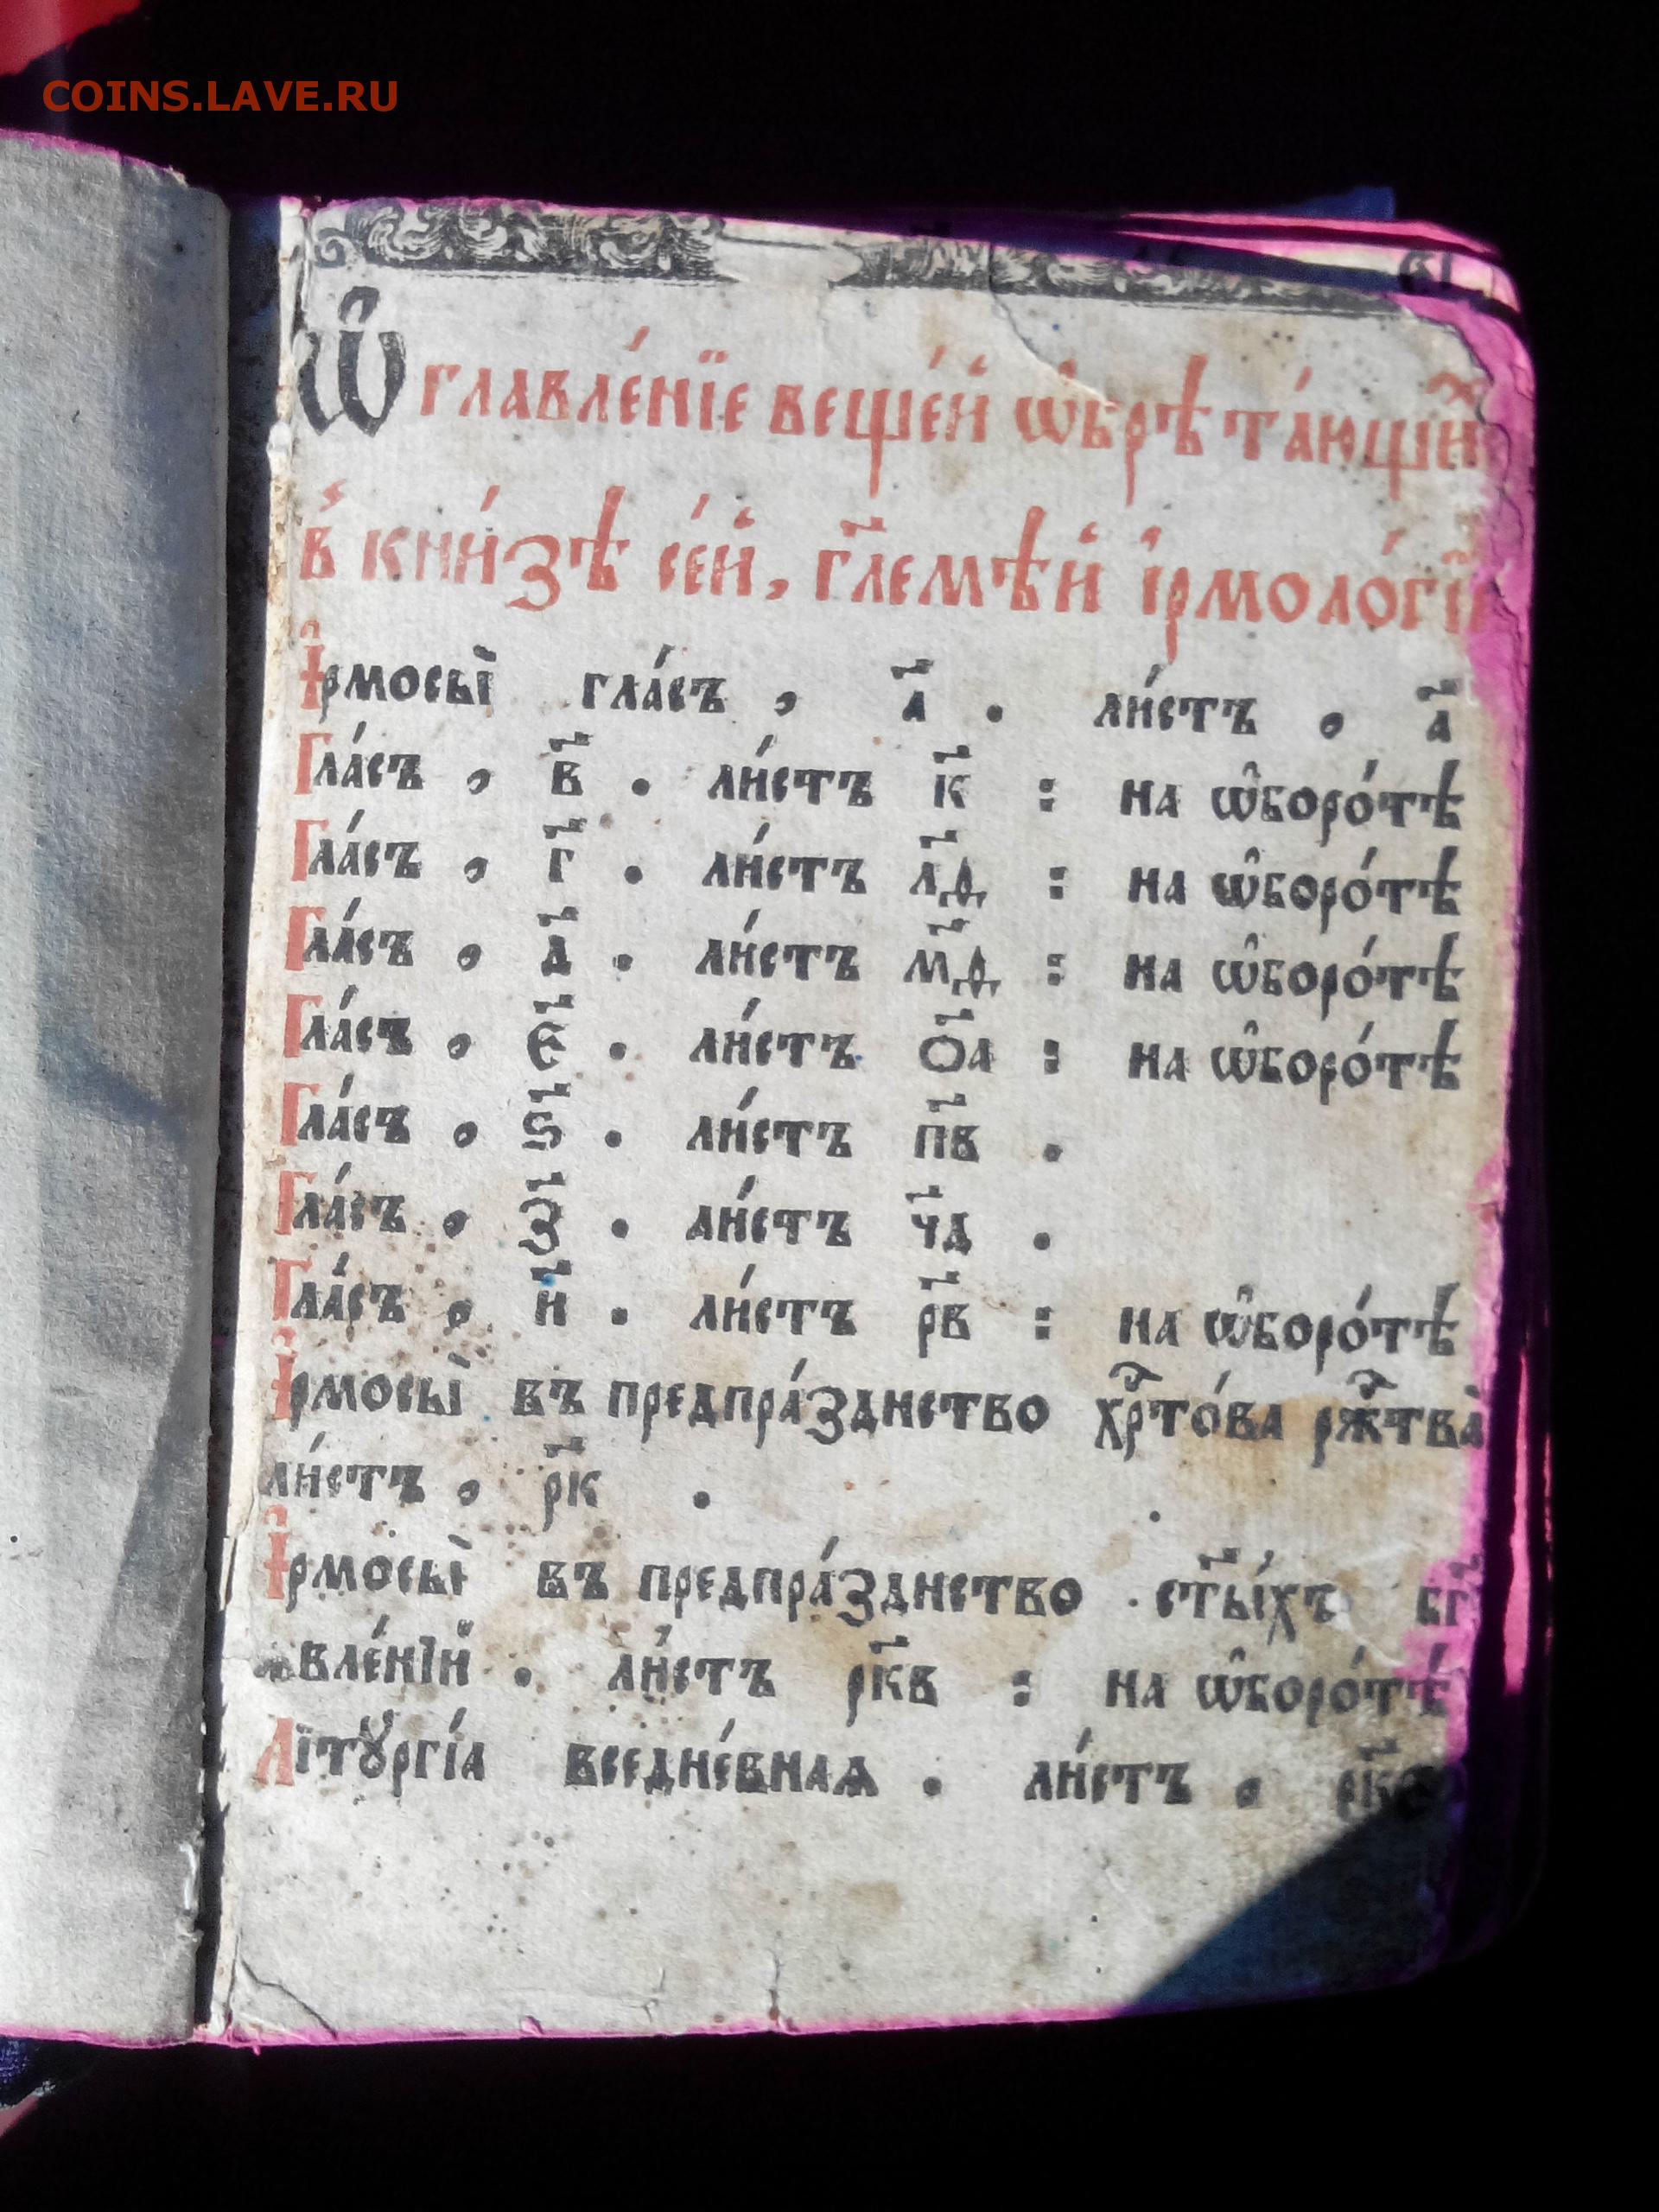 COINS.LAVE.RU
Ѡ҆главле́нїе веще́й ѡ҆брѣта́ющїи
в̾ кни́зѣ се́й, гл҃емѣй і҆рмоло́гїи
І҆рмосы̀ гла́съ , а҃ . ли́стъ , а҃
Гла́съ , в҃ . ли́стъ к҃ : на ѡ҆боро́тѣ
Гла́съ , г҃ . ли́стъ л҃д : на ѡ҆боро́тѣ
Гла́съ , д҃ . ли́стъ м҃д : на ѡ҆боро́тѣ
Гла́съ , є҃ . ли́стъ ѻ҃а : на ѡ҆боро́тѣ
Гла́съ , ѕ҃ . ли́стъ п҃в .
Гла́съ , з҃ . ли́стъ ч҃д .
Гла́съ , и҃ . ли́стъ р҃в : на ѡ҆боро́тѣ
І҆рмосы̀ въ предпра́зднство хрⷭ҇то́ва ржⷭ҇тва̀
ли́стъ , р҃к .
І҆рмосы̀ въ предпра́зднство ст҃ы́хъ бг҃
ѧвле́нїй . ли́стъ р҃кв : на ѡ҆боро́тѣ
Лїтꙋргі́а вседне́внаѧ . ли́стъ ,